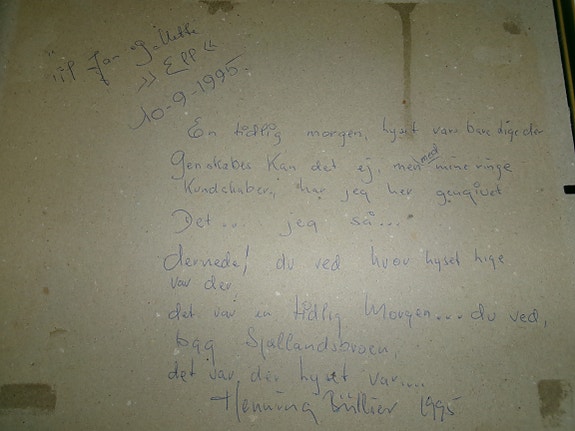 til Jan Gillette
>> EPP <<
10-9-1995.
En tidlig morgen, lyset var bare dige der
Genskabes Kan det ej, men med mine ringe
Kundskaber, har jeg her gengivet
Det... jeg så...
dernede! du ved hvor lyset lige
var der
det var en tidlig Morgen... du ved,
bag Sjællandsbroen,
det var der lyset var....
Henning 1995